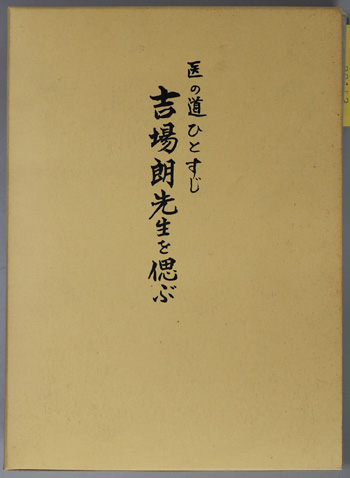 医の道ひとすじ
吉場朗先生を偲ぶ